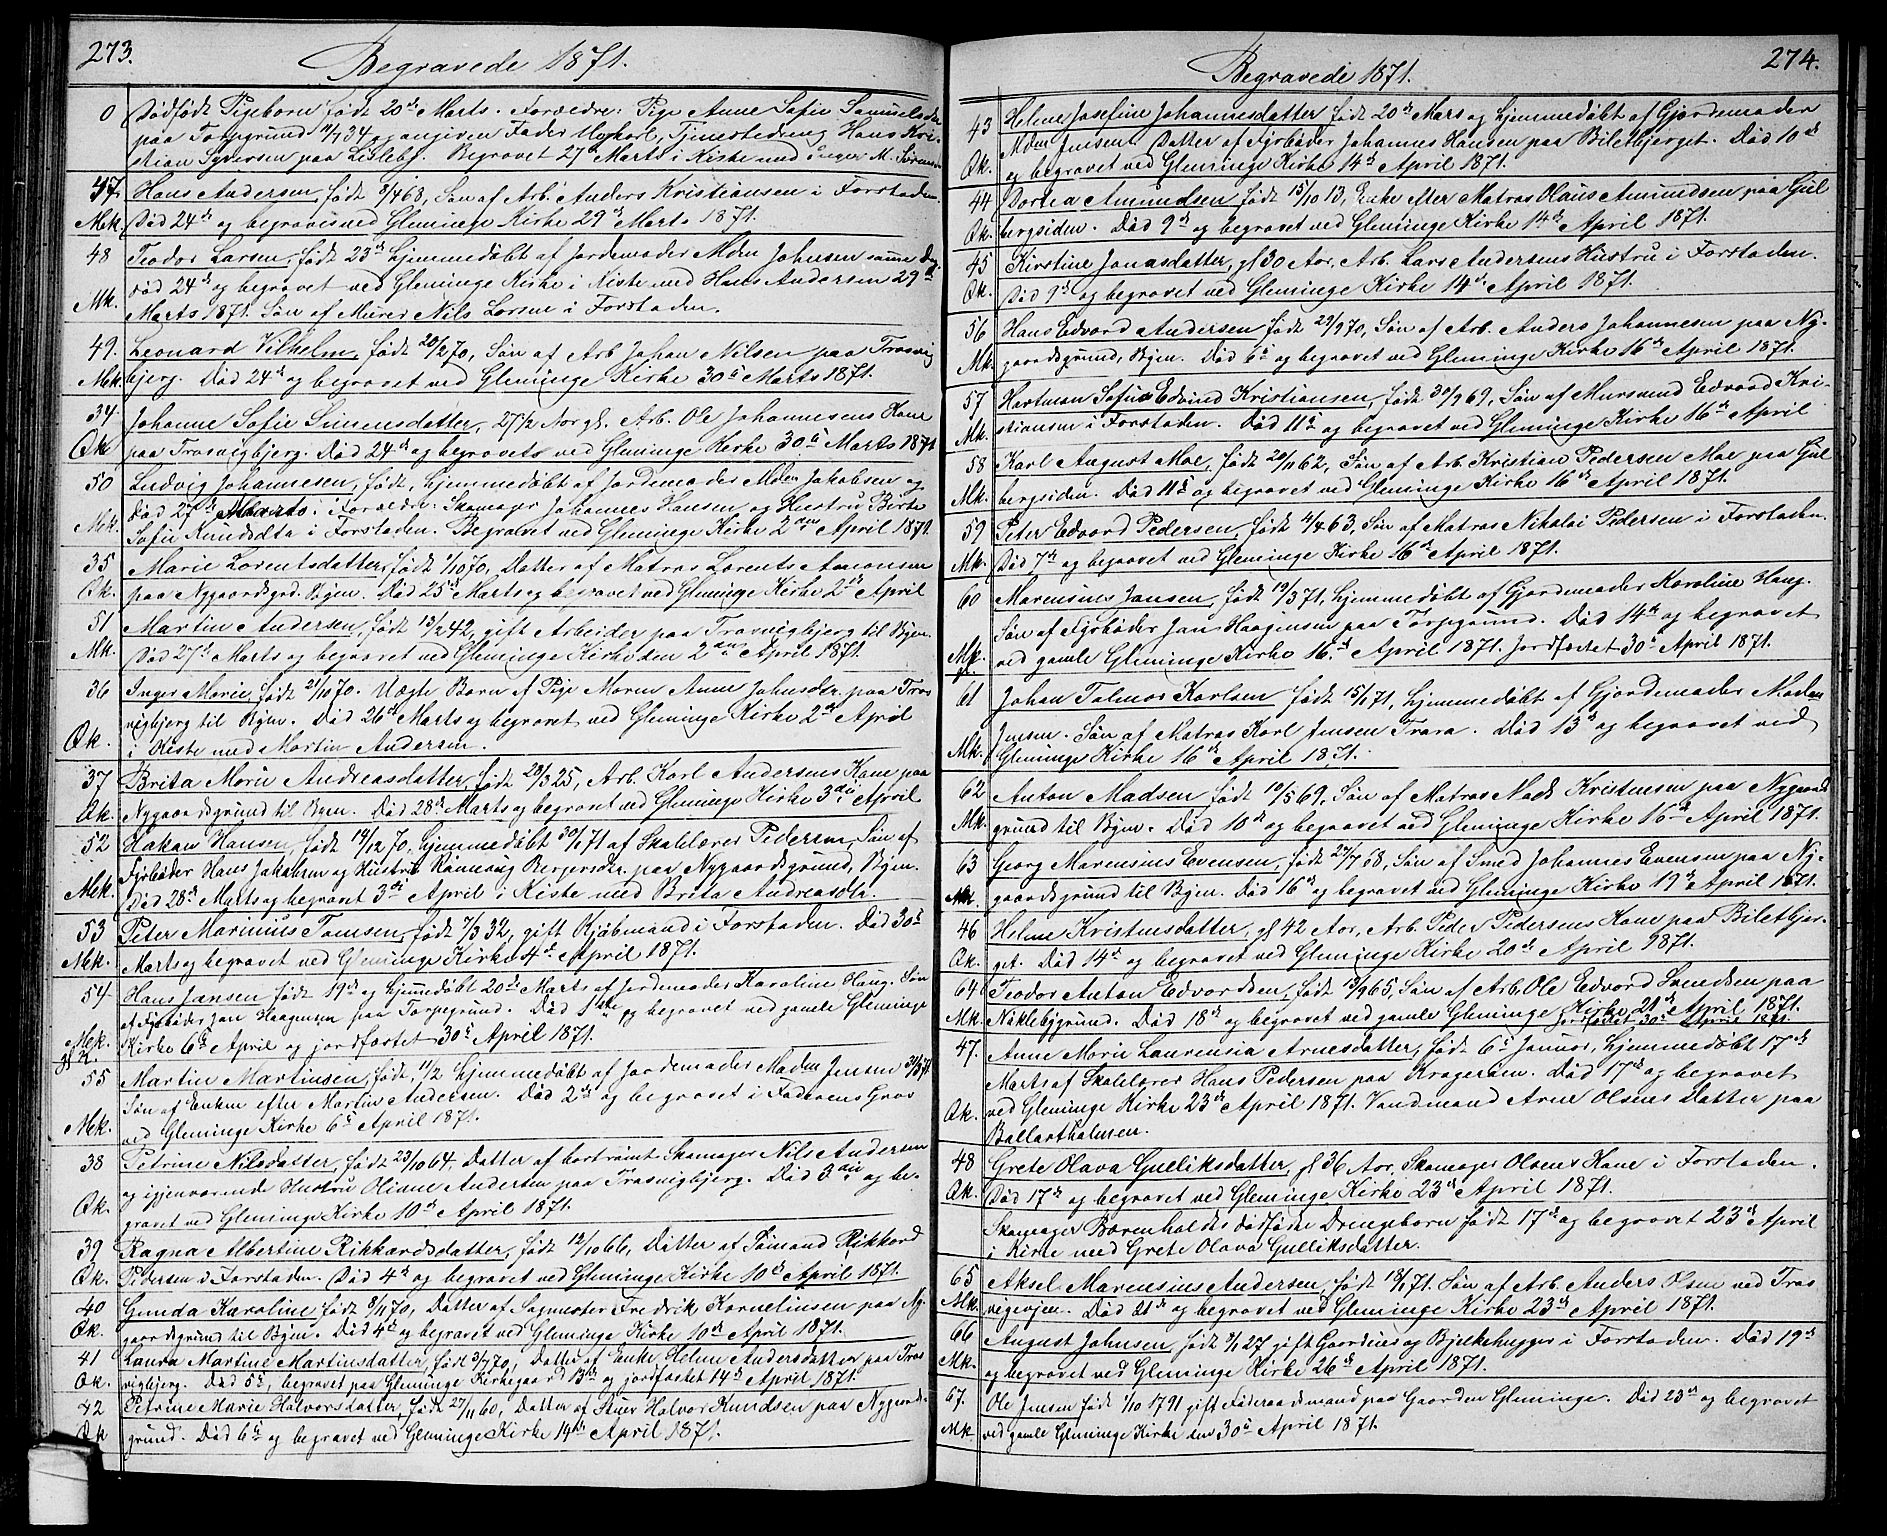 273.
Begravede 1871.
0 Dödfödt Pigebarn födt 20de Marts. Forældre: Pige Anne Sofie Samuelsdtr
paa Torpgrund og angiven Fader Ungkarl, Tjenestedreng Hans Kri-
stian Syversen paa Lisleby. Begravet 27 Marts i Kiste med Inger M. Sörensen
47 Hans Andersen, födt 8/4 68, Sön af Arb. Anders Kristiansen i Forstaden.
Mk. Död 24de og begraves ved Gleminge Kirke 29de Marts 1871.
48 Teodor Larsen, födt 23de hjemmedöbt af Jordemoder Mdm Johnsen samme Dag
död 24de og begravet ved Gleminge Kirke i Kiste med Hans Andersen 29de
Mk. Marts 1871. Sön af Murer Nils Larsen i Forstaden.
49. Leonard Vilhelm, födt 20/2 70, Sön af Arb Johan Nilsen paa Trosvig
Mk. bjerg. Död 24de og begravet ved Gleminge Kirke 30te Marts 1871.
34. Johanne Sofie Simensdatter, 27 1/2 Aar gl. Arb. Ole Johannesens Kone
Qk paa Trosvigbjerg. Död 24de og begravets ved Gleminge Kirke 30te Marts 1871
50 Ludvig Johannesen, födt, hjemmedöbt af Jordemoder Mdm Jakobsen og
död 27de Marts. Forældre: Skomager Johannes Hansen og Hustru Berte
Mk. Sofie Knudsdta i Forstaden. Begravet ved Gleminge Kirke 2den April 1871.
35 Marie Lorentsdatter, födt 1/10 70, Datter af Matros Lorents Amonsen
Qk. paa Nygaardsgrd. Byen. Död 25de Marts og begravet ved Gleminge Kirke 2den April
51 Martin Andersen, födt 13/2 42, gift Arbeider paa Trosvigbjerg til Byen.
Mk. Död 27de Marts og begravet ved Gleminge Kirke den 2den April 1871.
36 Inger Marie, födt 21/10 70. Uægte Barn af Pige Maren Anne Johnsdr. paa Tros
vigbjerg til Byen. Död 26de Marts og begravet ved Gleminge Kirke 2den April
Qk. i Kiste med Martin Andersen.
37 Brita Marie Andreasdatter, födt 23/3 25, Arb. Karl Andersens Kone paa
Qk. Nygaardsgrund til Byen. Död 28de Marts og begravet ved Gleminge Kirke 3die April
52 Hakan Hansen, födt 14/12 70, hjemmedöbt 30/1 71 af Skolelærer Pedersen, Sön af
Fyrböder Hans Jakobsen og Hustru Rönnaug Bergersdr. paa Nygaardsgrund, Byen.
Mk. Död 28de Marts og begravet 3die April i Kiste med Brita Andreasdta.
53 Peter Marinius Tomsen, födt 7/3 32, gift Kjöbmand i Forstaden. Död 30te
Mk. Marts og begravet ved Gleminge Kirke 4de April 1871.
54 Hans Jansen födt 19de og hjemmedöbt 20de Marts af Jordemoder Karoline Haug. Sön
af Fyrböder Jan Haagensen paa Torpegrund. Död 1ste og begravet ved gamle Gleminge
Mk. Kirke 6te April og jordfæstet 30te April 1871.
gl. K.
55 Martin Martinsen, födt 11/2 hjemmedöbt af Jordemoder Madm Jensen 31/3 71
Sön af Enken efter Martin Andersen. Död 2de og begravet i Faderens Grav
Mk. ved Gleminge Kirke 6te April 1871.
38 Petrine Nilsdatter, födt 23/10 64, Datter af bortrömt Skomager Nils Andersen
og igjenværende Hustru Oliane Andersen paa Trosvigbjerg. Död 3die og be-
Qk. gravet ved Gleminge Kirke 10de April 1871.
39 Ragna Albertine Rikkardsdatter, födt 12/10 66, Datter af Sömand Rikkard
Qk. Pedersen i Forstaden. Död 4de og begravet ved Gleminge Kirke 10de April 1871.
40 Gunda Karoline födt 8/11 70, Datter af Sagmester Fredrik Kornelinsen paa Ny-
Qk. gaardsgrund til Byen. Död 4de og begravet ved Gleminge Kirke 10de April 1871.
41 Laura Martine Martinsdatter, födt 3/7 70, Datter af Enke Helene Andersdatter paa Tros
Qk. vigbjerg. Död 5te, begravet paa Gleminge Kirkegaard 13de og jordfæstet 14de April 1871.
42 Petrine Marie Halvorsdatter, födt 27/11 60, Datter af Stuer Halvor Knudsen paa Nygaard-
Qk grund. Död 6te og begravet ved Gleminge Kirke 14de April 1871.
274.
Begravede 1871.
43 Helene Josefine Johannesdatter födt 20de Mars og hjemmedöbt af Gjordemoder
Mdm Jensen. Datter af Fyrböder Johannes Hansen paa Biletbjerget. Död 10de
Qk. og begravet ved Gleminge Kirke 14de April 1871.
44 Dortea Amundsen födt 15/10 13, Enke efter Matros Olaus Amundsen paa Gul
Qk. bergsiden. Död 9de og begravet ved Gleminge Kirke 14de April 1871.
45 Kirstine Jonasdatter, gl 30 Aar, Arb. Lars Andersens Hustru i Forstaden.
Qk. Död 9de og begravet ved Gleminge Kirke 14de April 1871.
56 Hans Edvard Andersen födt 29/9 70, Sön af Arb. Anders Johannesen paa Ny-
Mk. gaardsgrund, Byen. Död 6te og begravet ved Gleminge Kirke 16de April 1871.
57 Hartman Sofus Edvind Kristiansen, födt 30/9 69, Sön af Mursvend Edvard Kri-
Mk. stiansen i Forstaden. Död 11te og begravet ved Gleminge Kirke 16de April
58 Karl August Moe, födt 20/11 62, Sön af Arb. Kristian Pedersen Moe paa Gul
Mk. bergsiden. Död 11te og begravet ved Gleminge Kirke 16de April 1871.
59 Peter Edvard Pedersen, födt 4/4 63, Sön af Matros Nikolai Pedersen i Forstaden.
Mk. Död 7de og begravet ved Gleminge Kirke 16de April 1871.
60 Marensius Jansen, födt 19/3 71, hjemmedöbt af Gjordemoder Karoline Haug.
Sön af Fyrböder Jan Haagensen paa Torpegrund. Död 14de og begravet
Mk. ved gamle Gleminge Kirke 16de April 1871. Jordfæstet 30te April 1871.
61 Johan Talmor Karlsen födt 15/1 71, hjemmedöbt af Gjordemoder Madm
Jensen. Sön af Matros Karl Jensen Trara. Död 13de og begravet ved
Mk. Gleminge Kirke 16de April 1871.
62 Anton Madsen födt 10/5 69, Sön af Matros Mads Kristensen paa Nygaard
Mk. grund til Byen. Död 10de og begravet ved Gleminge Kirke 16de April 1871.
63 Georg Marensius Evensen, födt 27/7 68, Sön af Smed Johannes Evensen paa Ny-
Mk. gaardsgrund til Byen. Död 16de og begravet ved Gleminge Kirke 19de April 1871.
46 Helene Kristensdatter, gl 42 Aar, Arb. Peder Pedersens Kone paa Biletbjer-
Qk. get. Död 14de og begravet ved Gleminge Kirke 20de April 1871.
64 Teodor Anton Edvardsen, födt 13/9 65, Sön af Arb. Ole Edvard Svendsen paa
Mk. Niklebygrund. Död 18de og begravet ved gamle Gleminge Kirke 21de April 1871.
Jordfæstet 30te April 1871.
47. Anne Marie Laurensia Arnesdatter, födt 6te Januar, hjemmedöbt 17de
Marts af Skolelærer Hans Pedersen paa Kragerøen. Död 17de og begravet
Qk. ved Gleminge Kirke 23de April 1871. Vandmand Arne Olsens Datter paa
Ballastholmen.
48 Grete Olava Gulliksdatter, gl 36 Aar, Skomager Olsens Kone i Forstaden.
Qk. Död 17de og begravet ved Gleminge Kirke 23de April 1871.
Skomager Bærenholdts dödfödte Drengebarn födt 17de og begravet 23de April
i Kiste med Grete Olava Gulliksdatter.
65 Aksel Marensius Andersen, födt 18/1 71. Sön af Arb. Anders Olsen ved Tros
Mk. vigvejen. Död 21de og begravet ved Gleminge Kirke 23de April 1871.
66 August Johnsen, födt 9/1 27 gift Gaardeier og Bjelkehugger i Forstaden. Död 19de
Mk. og begravet ved Gleminge Kirke 26de April 1871.
67. Ole Jensen födt 1/10 1791 gift Föderaadsmand paa Gaarden Gleminge. Död 23de og begravet
Mk. ved gamle Gleminge Kirke den 30te April 1871.